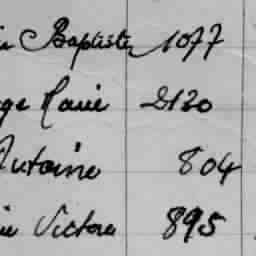 Baptiste 1077
Marie 2130
Antoine 804
Victore 895